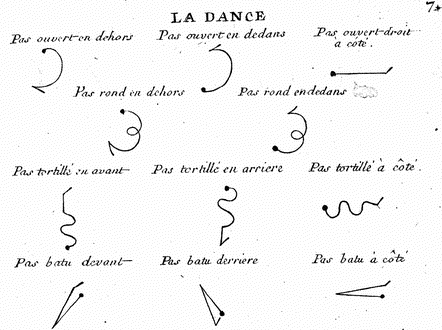 7*
LA DANCE
Pas ouvert en dehors
Pas ouvert en dedans
Pas ouvert droit
a coté.
Pas rond en dehors
Pas rond en dedans
Pas tortillé en avant
Pas tortillé en arriere
Pas tortillé à côté.
Pas batu devant
Pas batu derriere
Pas batu à côté